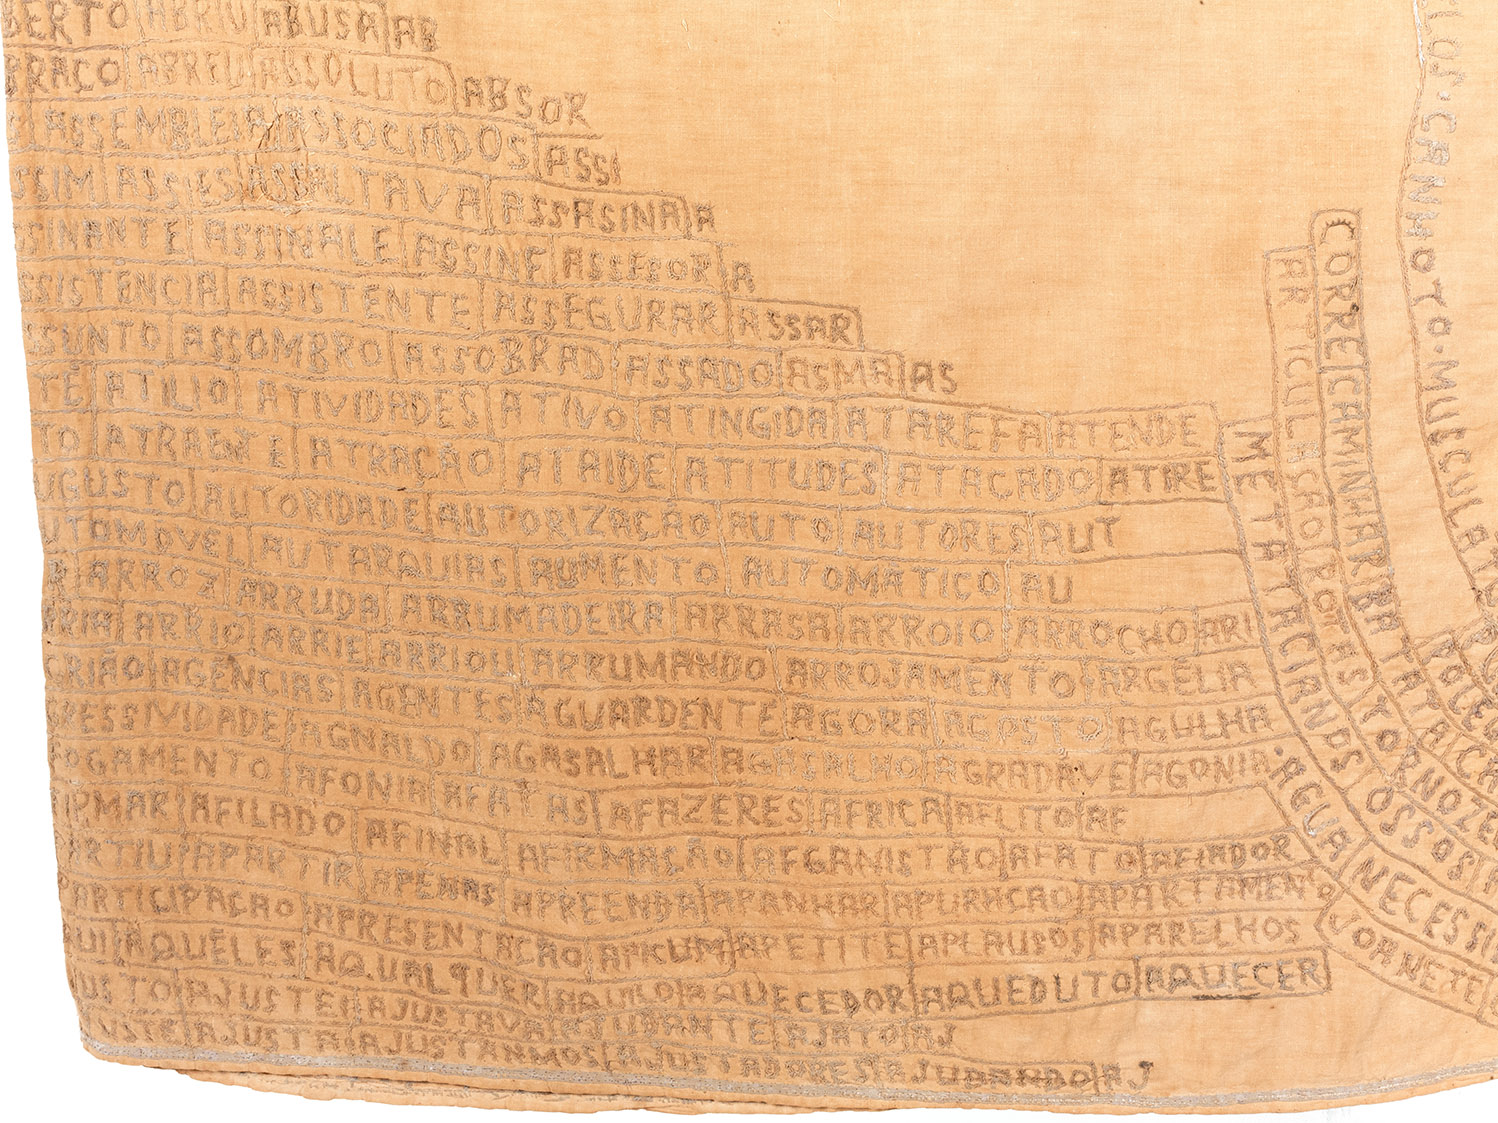 BERTO ABRIU ABUSA AB
BRAÇO ABREU ABSOLUTO ABSOR
ASSEMBLEIA ASSOCIADOS ASSI
SSIM ASSIES ASSALTAVA ASSASINA A
SINANTE ASSINALE ASSINE ASSESOR A
SSISTENCIA ASSISTENTE ASSEGURAR ASSAR
SUNTO ASSOMBRO ASSOBRAD ASSADO ASMA AS
TÉ ATILIO ATIVIDADES ATIVO ATINGIDA ATAREFA ATENDE
TO ATRAENTE ATRAÇÃO ATAIDE ATITUDES ATACADO ATIRE
UGUSTO AUTORIDADE AUTORIZAÇÃO AUTO AUTORES AUT
UTOMOVEL AUTARQUIAS AUMENTO AUTOMATICO AU
ARROZ ARRUDA ARRUMADEIRA ARRASA ARROIO ARROCHO ARI
ARIA ARRIO ARRIE ARRIOU ARRUMANDO ARROJAMENTO ARGÉLIA
GRIÃO AGÊNCIAS AGENTES AGUARDENTE AGORA AGOSTO AGULHA
GRESSIVIDADE AGNALDO AGASALHAR AGASALHO AGRADAVE AGONIA
FOGAMENTO AFONIA AFATAS AFAZERES AFRICA AFLITO AF
MAR AFILADO AFINAL AFIRMAÇÃO AFGANISTÃO AFATO AFIADOR
ARTIU APARTIR APENAS APREENDA APANHAR APURACAO APARTAMENTO
PARTICIPAÇÃO APRESENTAÇÃO APICUM APETITE APLAUDOS APARELHOS
UI AQUÊLES AQUALQUER AQUILO AQUECEDOR AQUEDUTO AQUECER
USTO AJUSTEI AJUSTAVA AJUDANTE AJATO AJ
JUSTE AJUSTA AJUSTANMOS AJUSTADORES AJUDARADO AJ
METATACIANOS
ARTICULAÇÃO ROTAS OSSOS
CORRE CAMINHARBA TORNOZE
AGUA NECESSI
JORNETE
LOS·CANHOTO·MUSCULATO
TATATICA